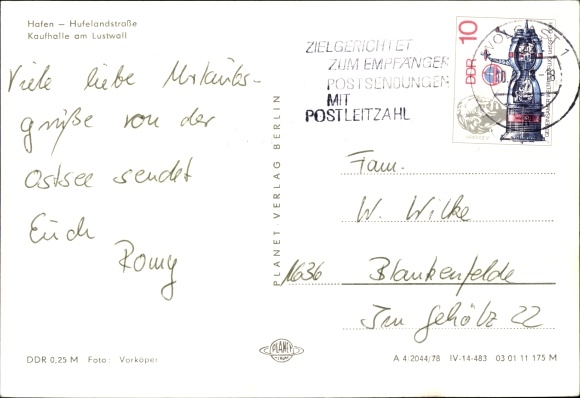 Hafen – Hufelandstraße
Kaufhalle am Lustwall
ZIELGERICHTET
ZUM EMPFÄNGER
POSTSENDUNGEN
MIT
POSTLEITZAHL
WOLGAST 1
10
DDR
Viele liebe Urlaubs-
grüße von der
Ostsee sendet
Euch
Romy
PLANET VERLAG BERLIN
Fam.
W. Wilke
1636 Blankenfelde
Im Gehölz 22
DDR 0,25 M Foto: Vorköper
PLANET
A 4/2044/78 IV-14-483 03 01 11 175 M